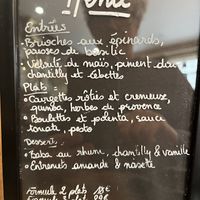 Menu
Entrées
• Brioches aux épinards,
pousses de basilic
• Velouté de maïs, piment doux
chantilly et
Plats :
• Courgettes rôties et crémeuse,
quinoa, herbes de provence
• Boulettes et polenta, sauce
tomate, pesto
Desserts
• Baba au rhum, chantilly & vanille
• Entremets amande &
Formule 2 plats 18€
Formule 3 plats